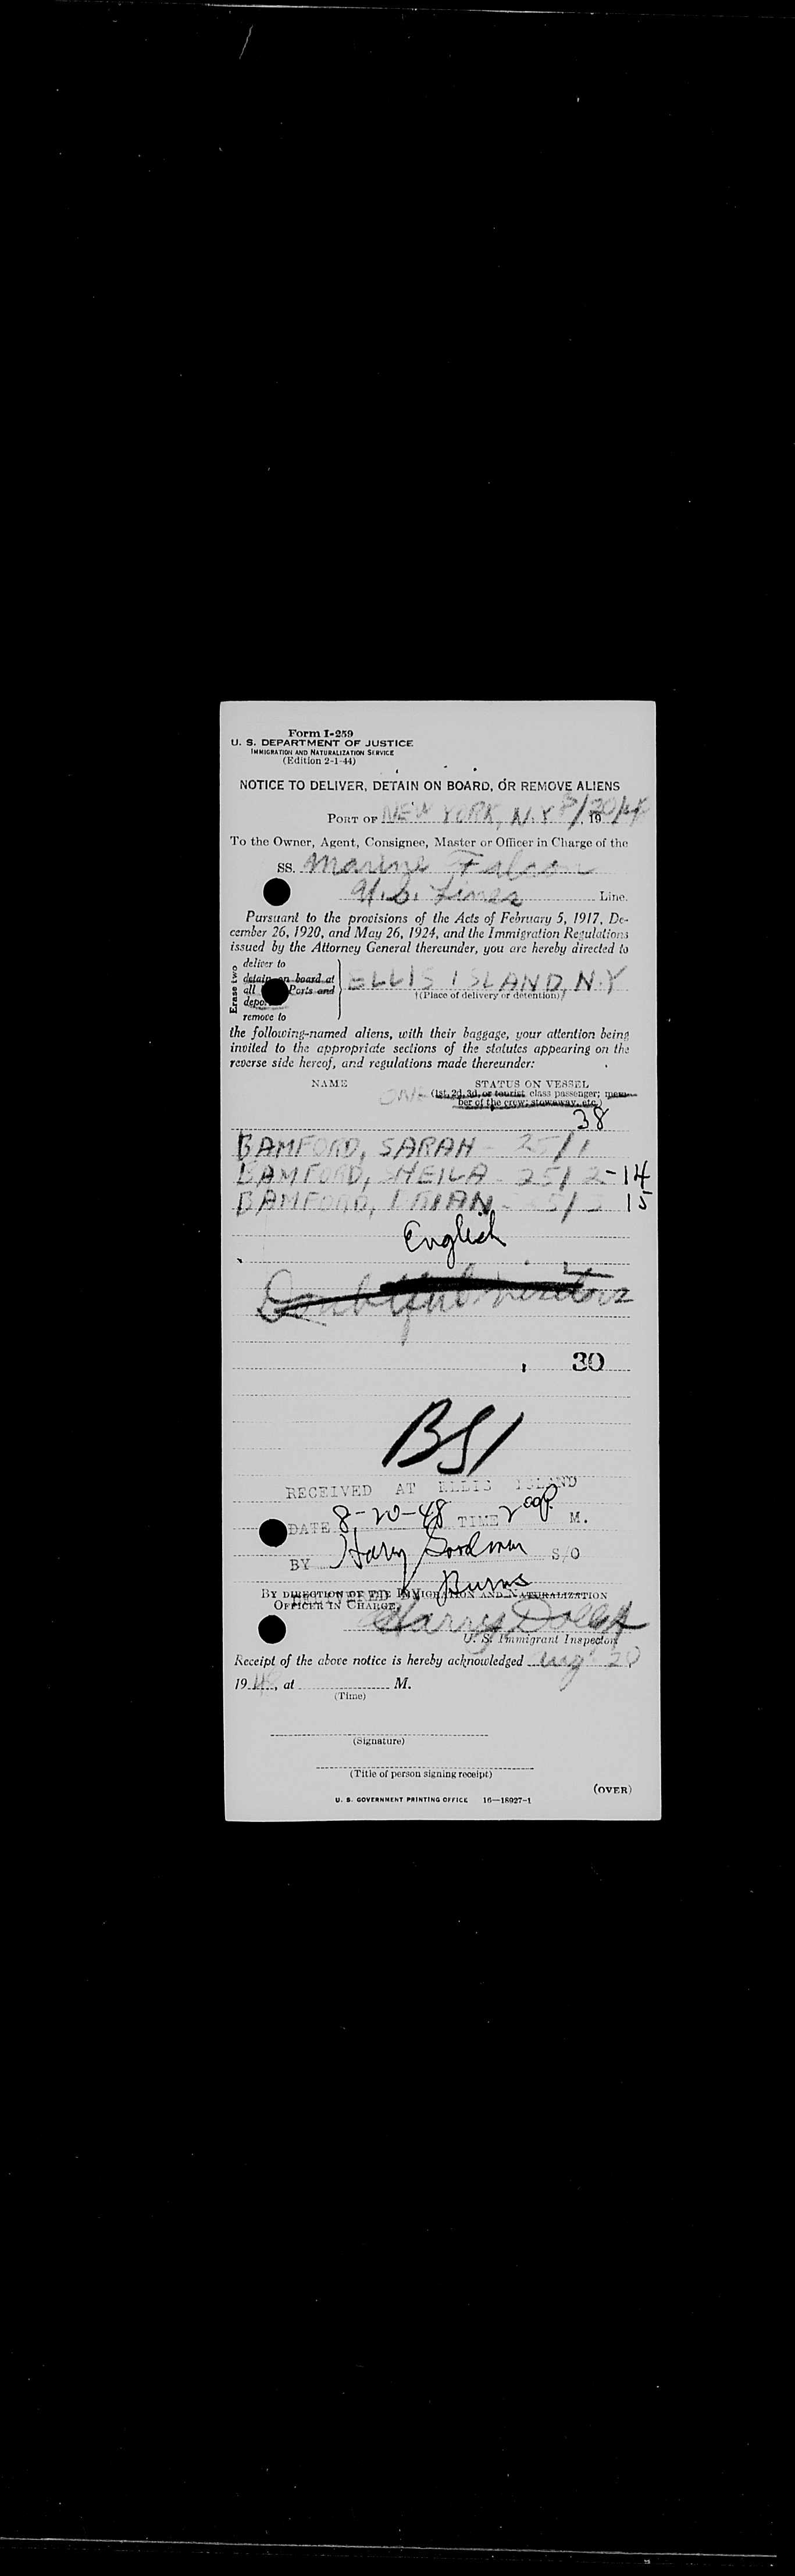 Form I-259
U. S. DEPARTMENT OF JUSTICE
IMMIGRATION AND NATURALIZATION SERVICE
(Edition 2-1-44)
NOTICE TO DELIVER, DETAIN ON BOARD, OR REMOVE ALIENS
PORT OF NEW YORK, N.Y 8/20/48, 19
To the Owner, Agent, Consignee, Master or Officer in Charge of the
SS. Marine Falcon
U.S. Lines Line.
Pursuant to the provisions of the Acts of February 5, 1917, De-
cember 26, 1920, and May 26, 1924, and the Immigration Regulations
issued by the Attorney General thereunder, you are hereby directed to
Erase two
deliver to
detain on board at
all Ports and
remove to
ELLIS ISLAND, N.Y
(Place of delivery or detention)
the following-named aliens, with their baggage, your attention being
invited to the appropriate sections of the statutes appearing on the
reverse side hereof, and regulations made thereunder:
NAME STATUS ON VESSEL
ONE (1st, 2d, 3d, or tourist class passenger; mem-
ber of the crew; stowaway, etc.)
38
BAMFORD, SARAH - 25/1
BAMFORD, SHEILA - 25/2 - 14
BAMFORD, BRIAN 15
English
Doubtful visitors
30
BSI
RECEIVED AT ELLIS ISLAND
DATE 8-20-48 TIME 2 00 P. M.
BY Harry Goodman S/O
Burns
BY DIRECTION OF THE IMMIGRATION AND NATURALIZATION
OFFICER IN CHARGE,
Harry
U. S. Immigrant Inspector
Receipt of the above notice is hereby acknowledged Aug 20
1948, at M.
(Time)
(Signature)
(Title of person signing receipt)
(OVER)
U. S. GOVERNMENT PRINTING OFFICE 16—18927-1